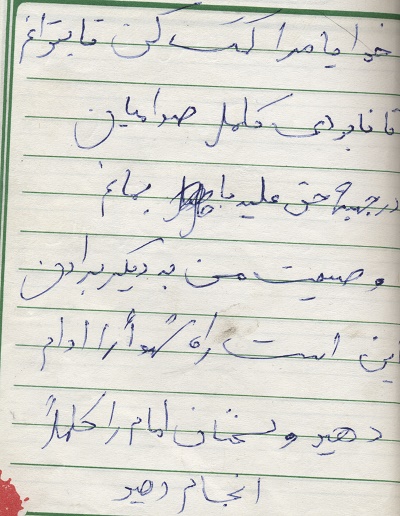 خدایا مرا کمک کن تا بتوانم
تا نابودی کامل صدامیان
در جبهه حق علیه باطل بمانم
وصیت من به دیگر برادران
این است راه شهدا را ادامه
دهید و سخنان امام را کاملاً
انجام دهید